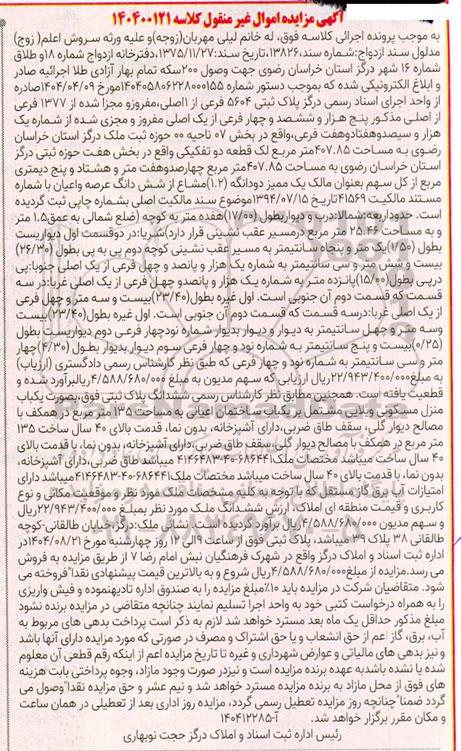 آگهی مزایده اموال غیر منقول کلاسه ۱۴۰۴۰۰۱۲۱
به موجب پرونده اجرائی کلاسه فوق، له خانم لیلی مهربان(زوجه)و علیه ورثه سروش اعلم( زوج)
مدلول سند ازدواج:شماره سند،۱۳۸۲۶، تاریخ سند:۱۳۷۵/۱۱/۲۷،دفترخانه ازدواج شماره ۱۸و طلاق
شماره ۱۶ شهر درگز استان خراسان رضوی جهت وصول ۲۰۰سکه تمام بهار آزادی طلا اجرائیه صادر
و ابلاغ الکترونیکی شده که بموجب دستور شماره ۱۴۰۴۰۵۸۰۶۲۲۸۰۰۰۱۵۵مورخ ۱۴۰۴/۰۴/۰۹صادره
از واحد اجرای اسناد رسمی درگز پلاک ثبتی ۵۶۰۴ فرعی از ۱اصلی،مفروزو مجزا شده از ۱۳۷۷ فرعی
از اصلی مذکور پنج هزار و ششصد و چهار فرعی از یک اصلی مفروز و مجزی شده از شماره یک
هزار و سیصدوهفتادوهفت فرعی،واقع در بخش ۰۷ ناحیه ۰۰ حوزه ثبت ملک درگز استان خراسان
رضوی به مساحت ۴۰۷.۸۵متر مربع لک قطعه دو تفکیکی واقع در بخش هفت حوزه ثبتی درگز
استان خراسان رضوی به مساحت ۴۰۷.۸۵متر مربع چهارصدوهفت متر و هشتاد و پنج دیمتری
مربع از کل سهم بعنوان مالک یک ممیز دودانگه (۱.۲)مشاع از شش دانگ عرصه واعیان با شماره
مستند مالکیت ۴۱۵۶۹تاریخ ۱۳۹۴/۰۷/۱۵موضوع سند مالکیت اصلی بشماره چاپی ثبت گردیده
است. حدوداربعه:شمالا:درب و دیواربطول (۱۷/۰۰)هفده متر به کوچه (ضلع شمالی به عمق۱.۵ متر
و به مساحت ۲۵.۴۶ متر مربع درمسیر عقب نشینی قرار دارد)شرقا:در دوقسمت اول دیواریست
بطول (۱/۵۰)یک متر و پنجاه سانتیمتر به مسیر عقب نشینی کوچه دوم پی به پی بطول (۲۶/۳۰)
بیست و شش متر و سی سانتیمتر به شماره یک هزار و پانصد و چهل فرعی از یک اصلی جنوبا:پی
درپی بطول (۱۵/۰۰)پانزده متر به شماره یک هزار و پانصدو چهل فرعی از یک اصلی غربا:در سه
قسمت که قسمت دوم آن جنوبی است. اول غیره بطول(۲۳/۴۰)بیست و سه متر و چهل فرعی
از یک اصلی غربا:درسه قسمت که قسمت دوم آن جنوبی است. اول غیره بطول(۲۳/۴۰)بیست
وسه متر و چهل سانتیمتر به دیوار و دیوار بدیوار شماره نودچهار فرعی دوم دیواریست بطول
(۰/۲۵)بیست و پنج سانتیمتر به شماره نود و چهار فرعی سوم دیوار بدیوار بطول (۴/۳۰)چهار
متر و سی سانتیمتر به شماره نود و چهار فرعی که طبق نظر کارشناس رسمی دادگستری (ارزیاب)
به مبلغ۲۲/۹۴۳/۴۰۰/۰۰۰ریال ارزیابی که سهم مدیون به مبلغ ۴/۵۸۸/۶۸۰/۰۰۰ریالبرآورد شده و
قطعیت یافته است. همچنین مطابق نظر کارشناس رسمی ششدانگ پلاک ثبتی فوق،بصورت یکباب
منزل مسکونی ویلایی مشتمل بر یکباب ساختمان اعیان به مساحت ۱۳۵ متر مربع در همکف با
مصالح دیوار گلی، سقف طاق ضربی،دارای آشپزخانه، بدون نما، قدمت بالای ۴۰ سال ساخت ۱۳۵
متر مربع در همکف با مصالح دیوار گلی سقف طاق ضربی،دارای آشپزخانه، بدون نما، با قدمت بالای
۴۰ سال ساخت میباشد مختصات ملک۶۸۶۴۴۱-۴۱۴۶۴۸۳-۴۰ میباشد طاق ضربی،دارای آشپزخانه،
بدون نما، با قدمت بالای ۴۰ سال ساخت میباشد مختصات ملک۶۸۶۴۴۱-۴۱۴۶۴۸۳-۴۰میباشد دارای
امتیازات آب،برق،گاز مستقل،که با توجه به کلیه مشخصات ملک مورد نظر و موقعیت مکانی و نوع
کاربری و قیمت منطقه ای املاک، ارزش ششدانگ ملک مورد نظر بمبلغ ۲۲/۹۴۳/۴۰۰/۰۰۰ریال
و سهم مدیون ۴/۵۸۸/۶۸۰/۰۰۰ ریال برآورد گردیده است. نشانی ملک:درگز-خیابان طالقانی-کوچه
طالقانی ۳۸ پلاک ۳۹میباشد، پلاک ثبتی فوق از ساعت ۹الی ۱۲ روز چهارشنبه مورخ ۱۴۰۴/۰۸/۲۱در
اداره ثبت اسناد و املاک درگز واقع در شهرک فرهنگیان نبش امام رضا ۷ از طریق مزایده به فروش
می رسد.مزایده از مبلغ۴/۵۸۸/۶۸۰/۰۰۰ریال شروع و به بالاترین قیمت پیشنهادی نقدا"فروخته می
شود. متقاضیان شرکت در مزایده باید ۱۰٪مبلغ مزایده را به صندوق اداره تادیهنموده و فیش واریزی
را به همراه درخواست کتبی خود به واحد اجرا تسلیم نمایند چنانچه متقاضی در مزایده برنده نشود
مبلغ مذکور حداقل یک ماه بعد مسترد خواهد شد لازم به ذکر است پرداخت بدهی های مربوط به
آب، برق، گاز اعم از حق انشعاب و یا حق اشتراک و مصرف در صورتی که مورد مزایده دارای آنها باشد
و نیز بدهی های مالیاتی و عوارض شهرداری و غیره تا تاریخ مزایده اعم از اینکه رقم قطعی آن معلوم
شده یا نشده باشدبه عهده برنده مزایده است و نیزدر صورت وجود مازاد، وجوه پرداختی بابت هزینه
های فوق از محل مازاد به برنده مزایده مسترد خواهد شد و نیم عشر و حق مزایده نقدا"وصول می
گردد ضمنا"چنانچه روز مزایده تعطیل رسمی گردد، مزایده روز اداری بعد از تعطیلی در همان ساعت
و مکان مقرر برگزار خواهد شد. آ-۱۴۰۴۱۲۲۸۵
رئیس اداره ثبت اسناد و املاک درگز حجت نوبهاری